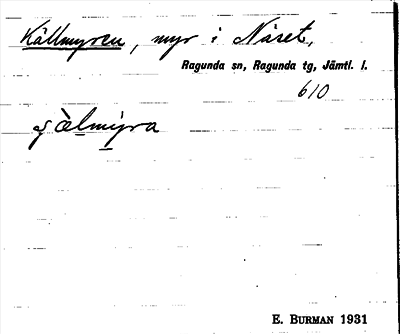 Källmyren, myr i Näset,
Ragunda sn, Ragunda tg, Jämtl. l.
610
E. BURMAN 1931